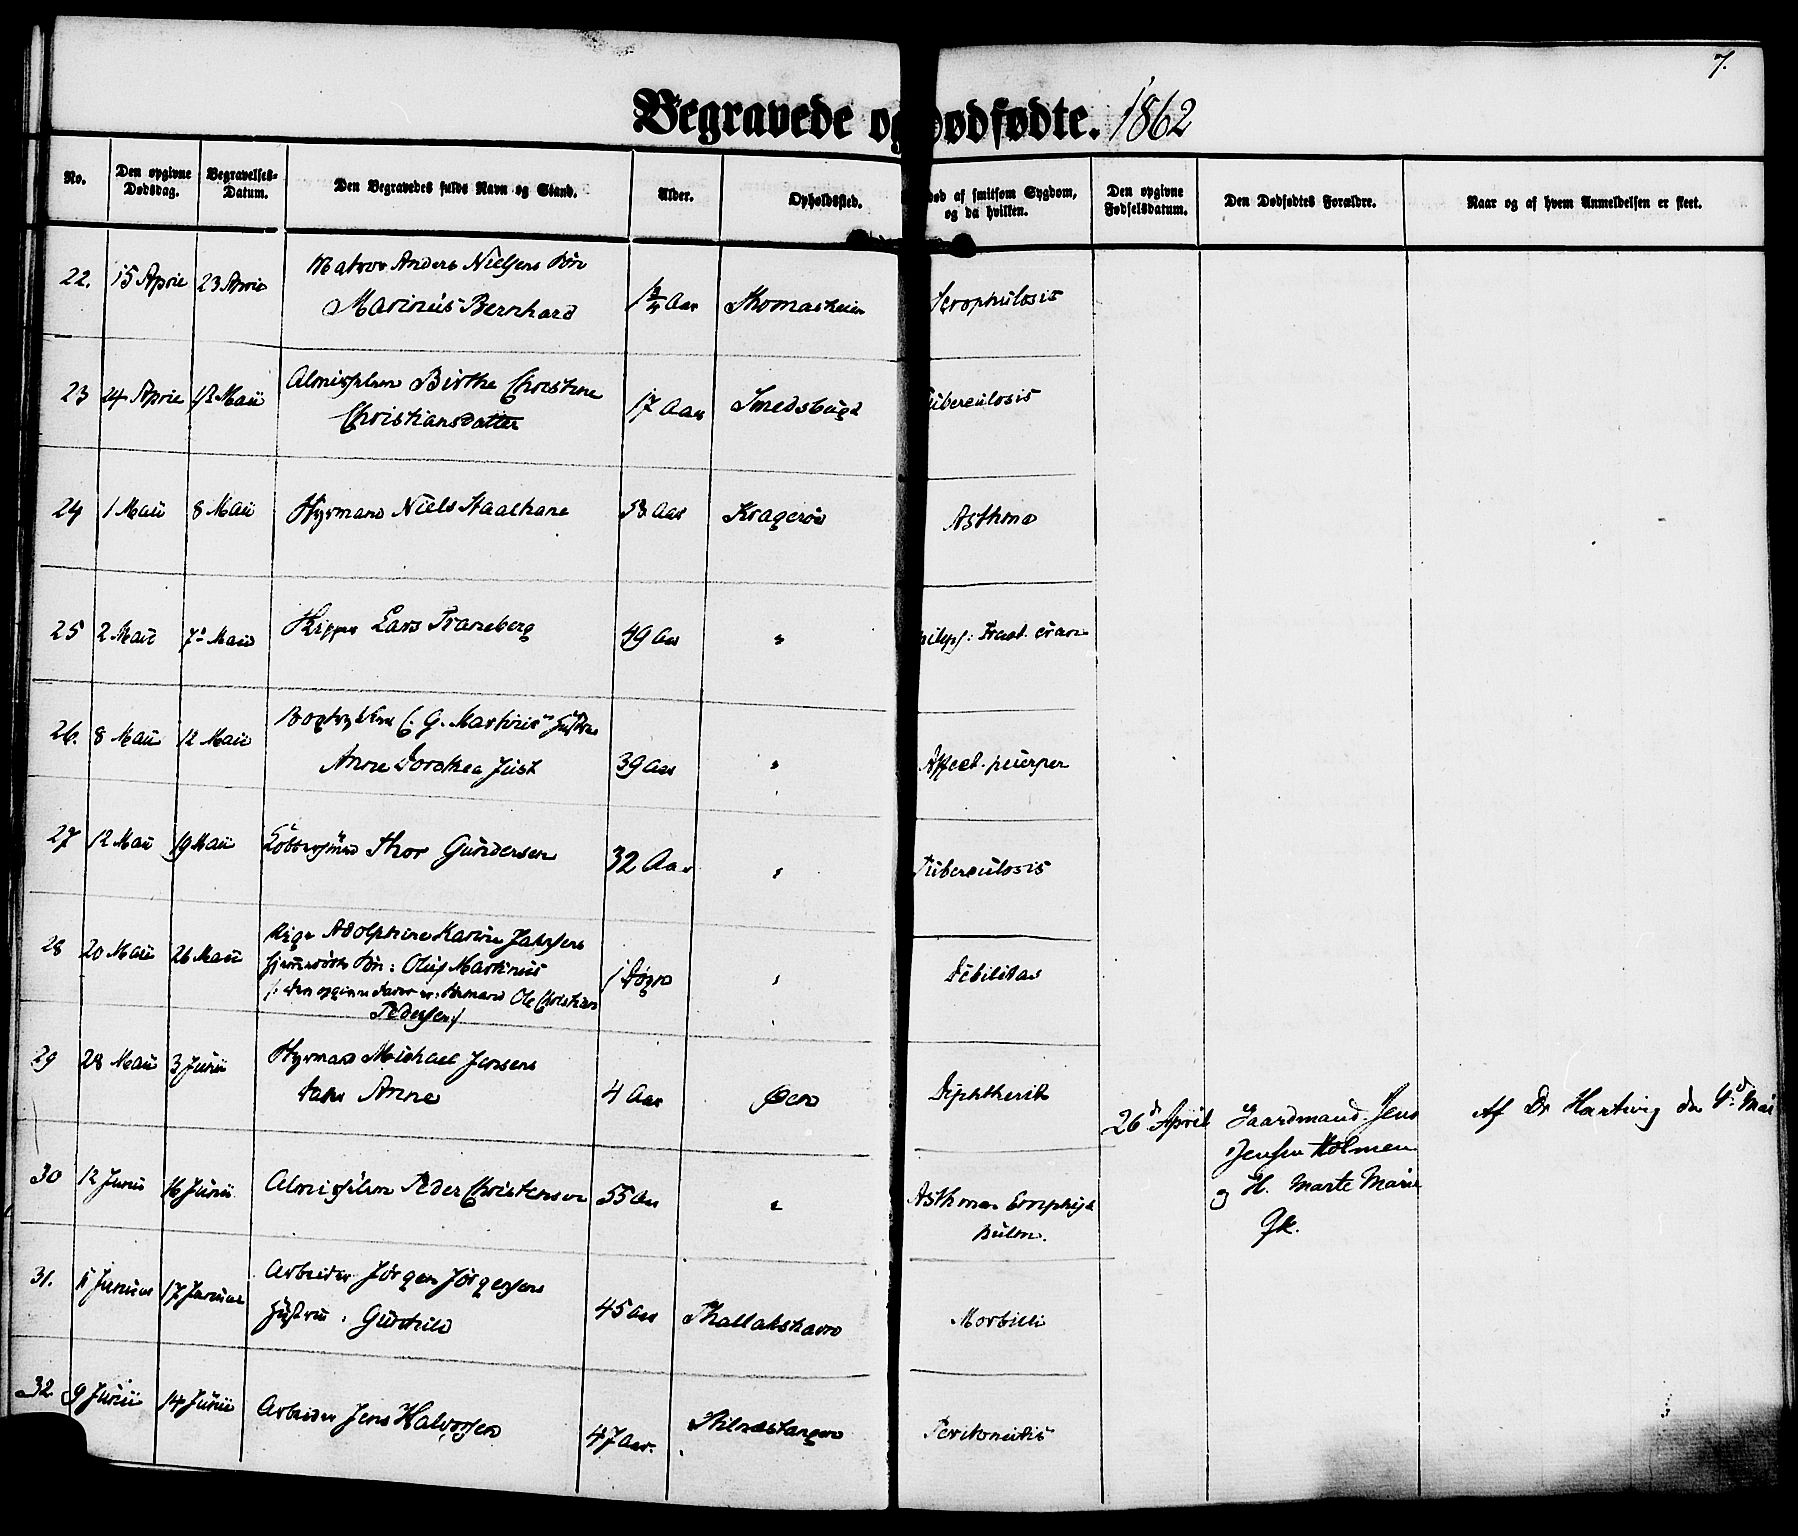 7.
Begravede og Dødfødte. 1862
No. Den opgivne Dødsdag. Begravelses-Datum. Den Begravedes fulde Navn og Stand. Alder. Opholdssted. død af smitsom Sygdom, og da hvilken. Den opgivne Fødselsdatum. Den Dødfødtes Forældre. Naar og af hvem Anmeldelsen er skeet.
22. 15 April 23 April Matros Anders Nielsens Søn
Marinius Bernhard 1¾ Aar Thomasheien Scrophulosis
23 24 April 12 Maii Almisselem Birthe Christine
Christiansdatter 17 Aar Smedsbugt Tuberculosis
24 1 Maii 8 Maii Styrmand Niels Staalhane 58 Aar Kragerøe Asthma
25 2 Maii 7 Maii Skipper Lars Traneberg 49 Aar "
26. 8 Maii 12 Maii Bogtrykker C. G. Martinis Hustru
Anne Dorothea Just 39 Aar " Affect. puerper
27 12 Maii 19 Maii Thor Gundersen 32 Aar " Tuberculosis
28 20 Maii 26 Maii Pige Adolphine Karine
Søn: Oluf Martinius
Ole Christian
Pedersen/ 1 Døgn " Debilitas
29 28 Maii 3 Junii Styrmand Michael Jensens
Datter Anne 4 Aar Øen Diphtherit
26d April Gaardmand Jens
Jensen Holmen
g H. Marte Marie
Gk. Af Dr Hartvig den Mai
30 12 Junii 16 Junii Almisselem Peder Christensen 55 Aar " Asthma
31. 11 Junius 17 Junius Arbeider Jørgen Jørgensens
Hustru: Gunhild 45 Aar Thallakshavn Morbilli
32 9 Junii 14 Junii Arbeider Jens Halvorsen 47 Aar. Stilnæstangen Peritonitis